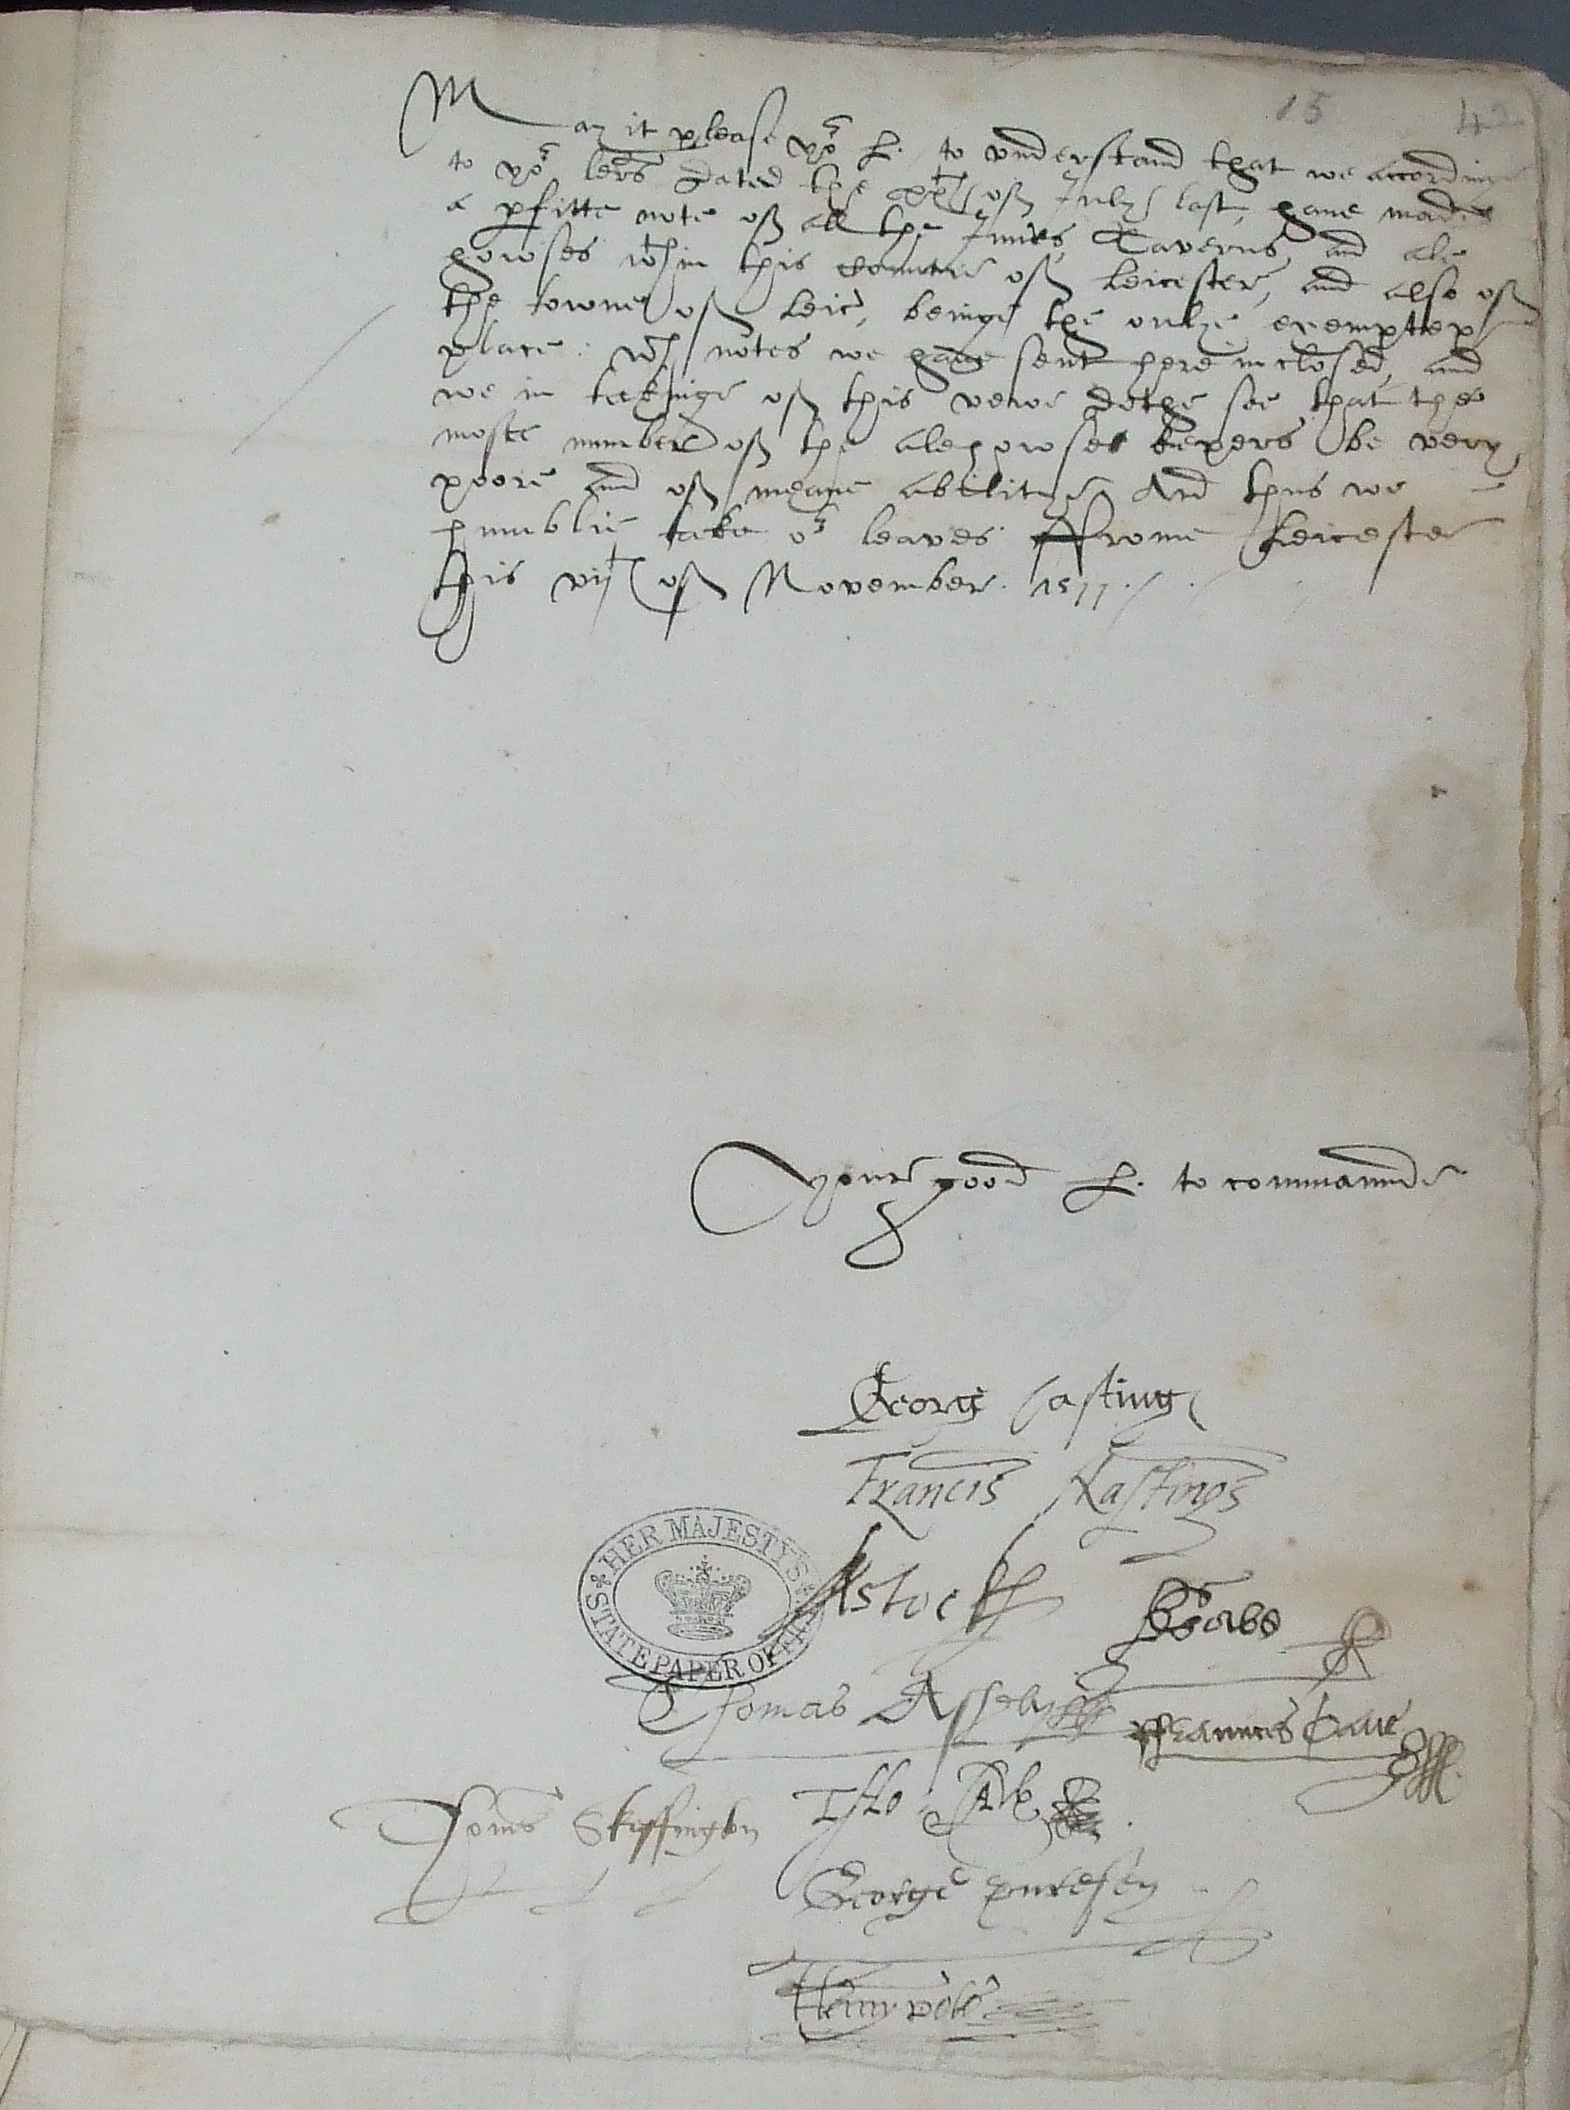 15 42
May it please yor L. to vnderstand that we accordinge
to yor lres dated the xxth of July last, haue made
a pfitte note of all the Innes, Taverns, and ale
howses wthin this countie of Leicester, and also of
the towne of Leic, beinge the onlye exempted
place: wch notes we haue sent here inclosed, and
we in takinge of this vewe dothe see that the
moste number of the alehowses kepers be very
poore and of meane abilitye And thus we
humblie take or leaves ffrome Leicester
this vijth of November. 1577.
Youre good L. to commaunde
George Hastings
Francis Hastings
HER MAJESTY'S STATE PAPER OFFICE
Thomas Asheby
ffrauncis Cave
Thoms Skeffington
George purefey
Henry